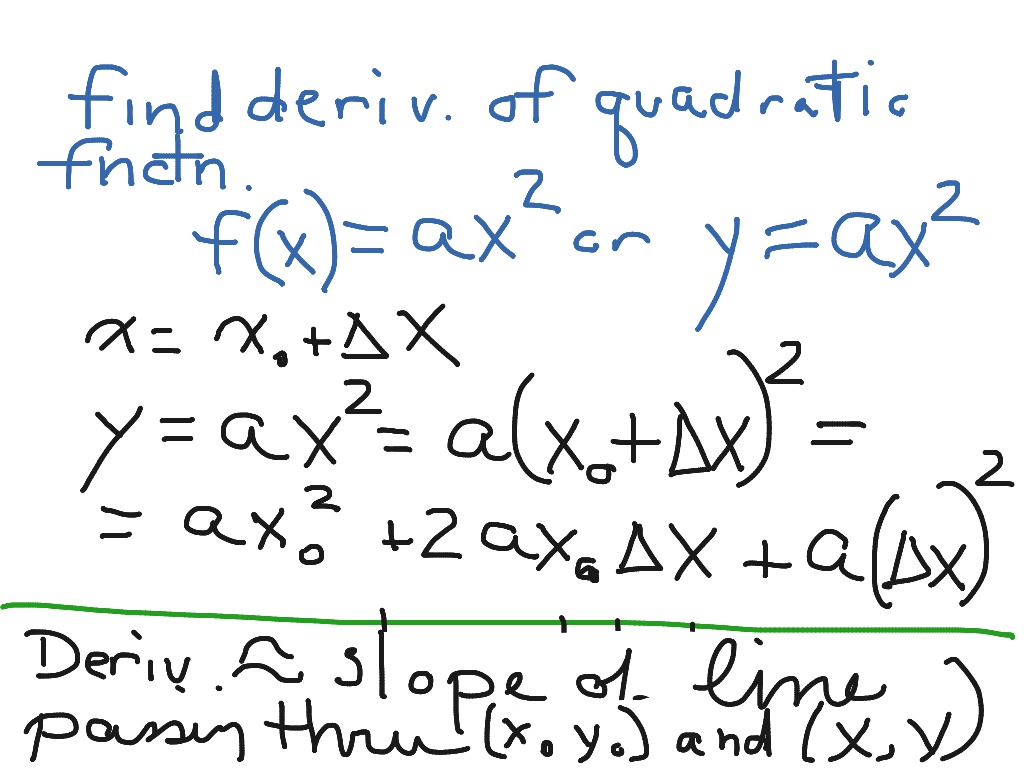 find deriv. of quadratic
fnctn.
f(x) = ax² or y = ax²
x = x₀ + Δx
y = ax² = a(x₀ + Δx)² =
= ax₀² + 2ax₀ Δx + a(Δx)²
Deriv. ≈ slope of line
passing thru (x₀ y₀) and (x, y)